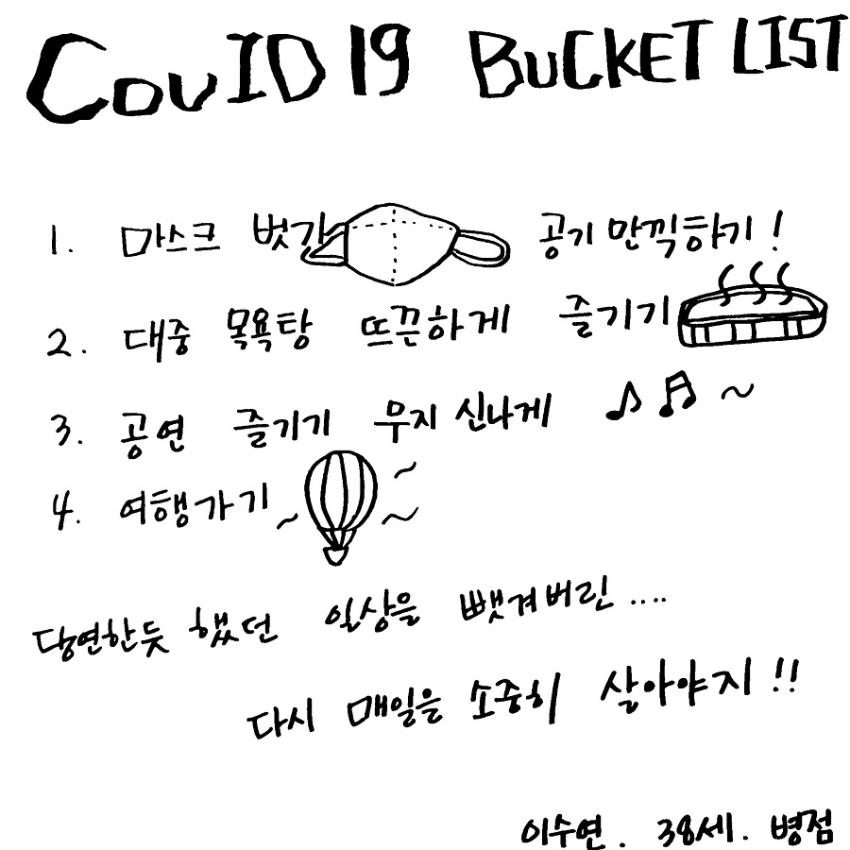 COVID 19 BUCKET LIST
1. 마스크 벗기 공기 만끽하기!
2. 대중 목욕탕 뜨끈하게 즐기기
3. 공연 즐기기 무지 신나게 ♪ ♬ ~
4. 여행가기 ~
당연한듯 했던 일상을 뺏겨버린 ....
다시 매일을 소중히 살아야지!!
이수연. 38세. 병점